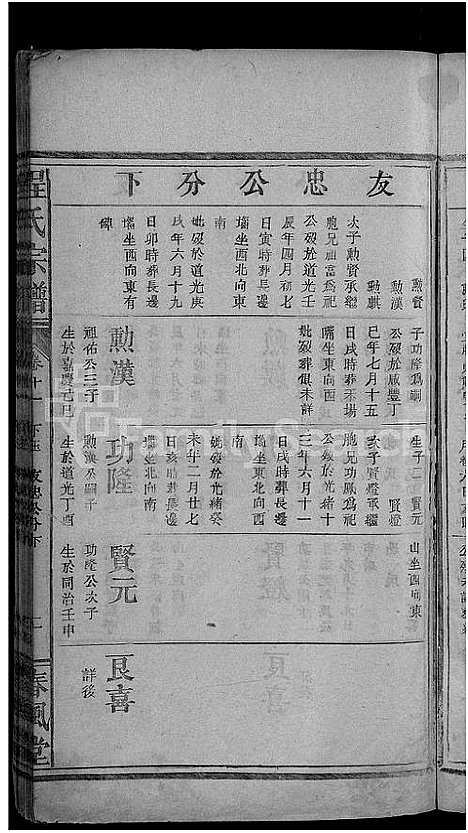 友忠公分下
勳賢
勳漢
勳騏
次子勳賢承繼
胞兄祖富爲祀
公歿於道光壬
辰年四月初七
日寅時葬長邊
塥坐西北向東
南
妣歿於道光庚
戌年六月十九
日卯時葬長邊
塥坐酉向東有
碑
子功隆爲嗣
公歿於咸豐丁
巳年七月十五
日戌時葬下塲
嘴坐東向西
妣歿葬俱未詳
勳漢
祖佑公三子
生於嘉慶己巳
生子二 賢元
賢燈
次子賢燈承繼
胞兄功鳳爲祀
公歿於光緒十
三年六月十一
日戌時葬長邊
塥坐東北向西
南
妣歿於光緒癸
未年二月廿七
日亥時葬長邊
塥坐北向南
功隆
勳漢公嗣子
生於道光丁酉
山坐西向東
賢元
功隆公次子
生於同治壬申
艮喜
詳後
程氏宗譜
卷十一
友忠公分下
一
春風堂
FamilySearch